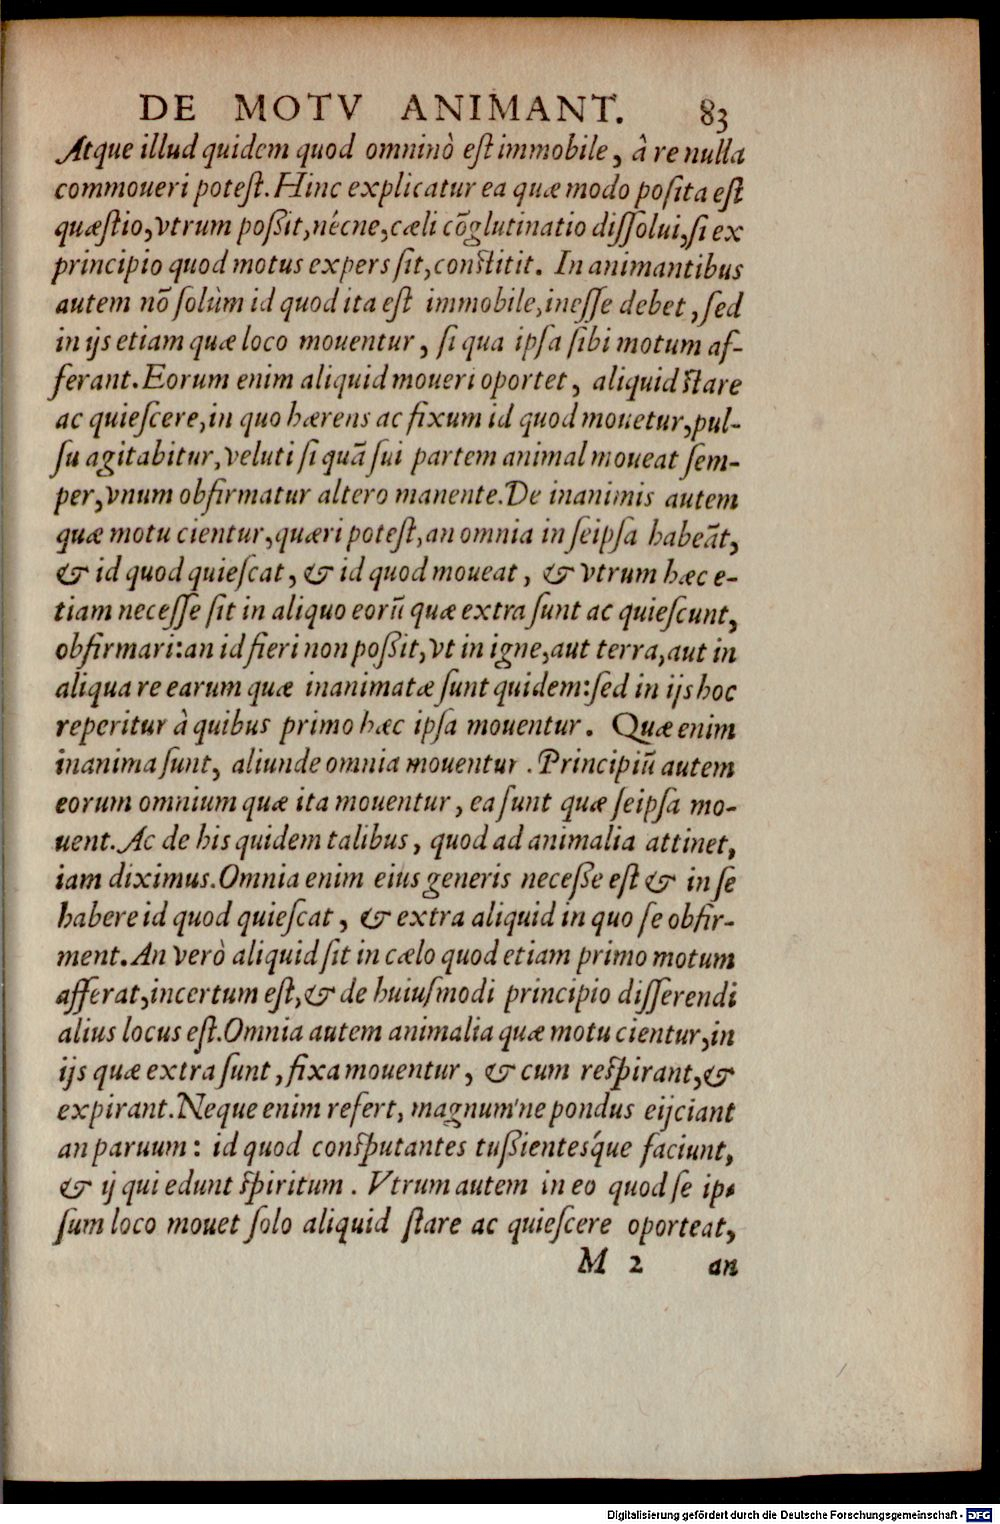 DE MOTV ANIMANT. 83
Atque illud quidem quod omninò est immobile, â re nulla
commoueri potest. Hinc explicatur ea quæ modo posita est
quæstio, vtrum possit, nécne, cæli cōglutinatio dissolui, si ex
principio quod motus expers sit, constitit. In animantibus
autem nō solùm id quod ita est immobile, inesse debet, sed
in ijs etiam quæ loco mouentur, si qua ipsa sibi motum af-
ferant. Eorum enim aliquid moueri oportet, aliquid stare
ac quiescere, in quo hærens ac fixum id quod mouetur, pul-
su agitabitur, veluti si quā sui partem animal moueat sem-
per, vnum obfirmatur altero manente. De inanimis autem
quæ motu cientur, quæri potest, an omnia in seipsa habeāt,
& id quod quiescat, & id quod moueat, & vtrum hæc e-
tiam necesse sit in aliquo eorū quæ extra sunt ac quiescunt,
obfirmari: an id fieri non possit, vt in igne, aut terra, aut in
aliqua re earum quæ inanimatæ sunt quidem: sed in ijs hoc
reperitur â quibus primo hæc ipsa mouentur. Quæ enim
inanima sunt, aliunde omnia mouentur. Principiū autem
eorum omnium quæ ita mouentur, ea sunt quæ seipsa mo-
uent. Ac de his quidem talibus, quod ad animalia attinet,
iam diximus. Omnia enim eius generis necesse est & in se
habere id quod quiescat, & extra aliquid in quo se obfir-
ment. An verò aliquid sit in cælo quod etiam primo motum
afferat, incertum est, & de huiusmodi principio disserendi
alius locus est. Omnia autem animalia quæ motu cientur, in
ijs quæ extra sunt, fixa mouentur, & cum respirant, &
expirant. Neque enim refert, magnum'ne pondus eijciant
an paruum: id quod consputantes tussientesq́ue faciunt,
& ij qui edunt spiritum. Vtrum autem in eo quod se ip-
sum loco mouet solo aliquid stare ac quiescere oporteat,
M 2 an
Digitalisierung gefördert durch die Deutsche Forschungsgemeinschaft - DFG